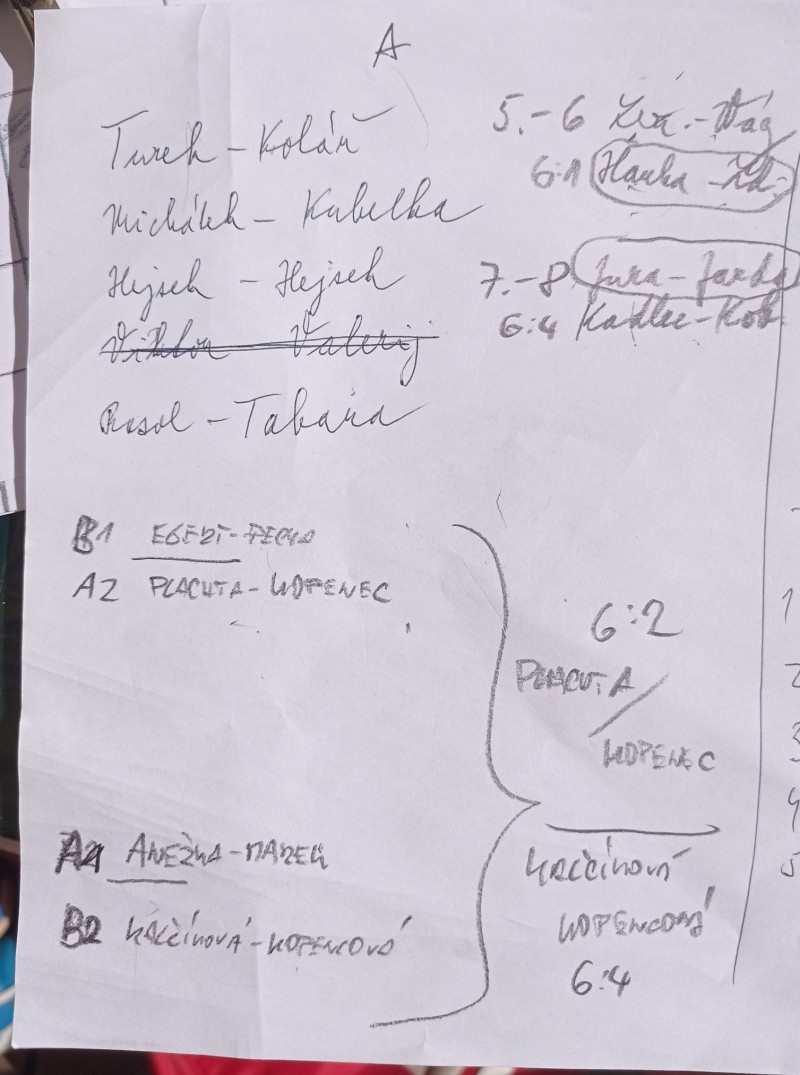 A
Turek - Kolář
Michálek - Kubelka
Hejsek - Hejsek
Viktor Valerij
Rosol - Tabara
5.-6
6:1 Hanka - Zd.
7.-8 Jura - Jarda
6:4 Kadlec - Kob
B1
A2 PLACHTA - KOPENEC
6:2
PLACHTA
/
KOPENEC
A1 ANEŽKA - MAREK
B2 KALČÍNOVÁ - KOPENCOVÁ
KALČÍNOVÁ
KOPENCOVÁ
6:4
1
2
3
4
5